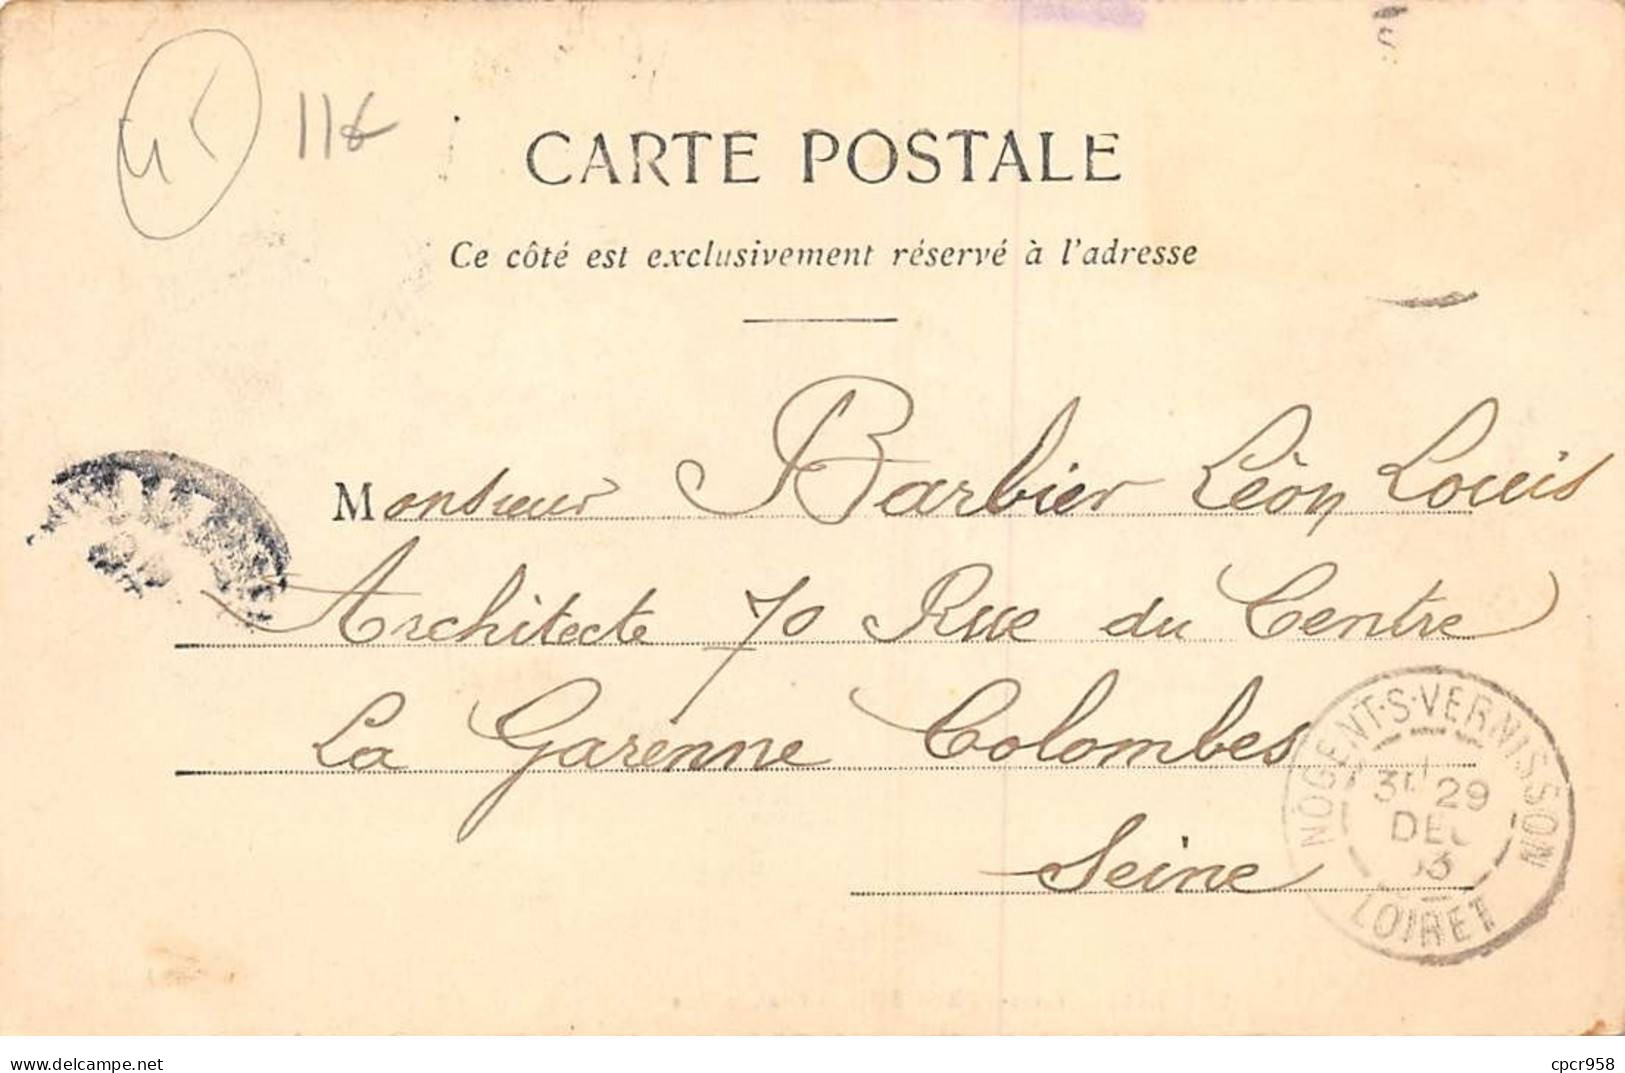 45
11€
CARTE POSTALE
Ce côté est exclusivement réservé à l'adresse
Monsieur Barbier Léon Louis
Architecte 70 Rue du Centre
La Garenne Colombes
Seine
NOGENT-S-VERNISSON
29
DEC
LOIRET
www.delcampe.net
cpcr958